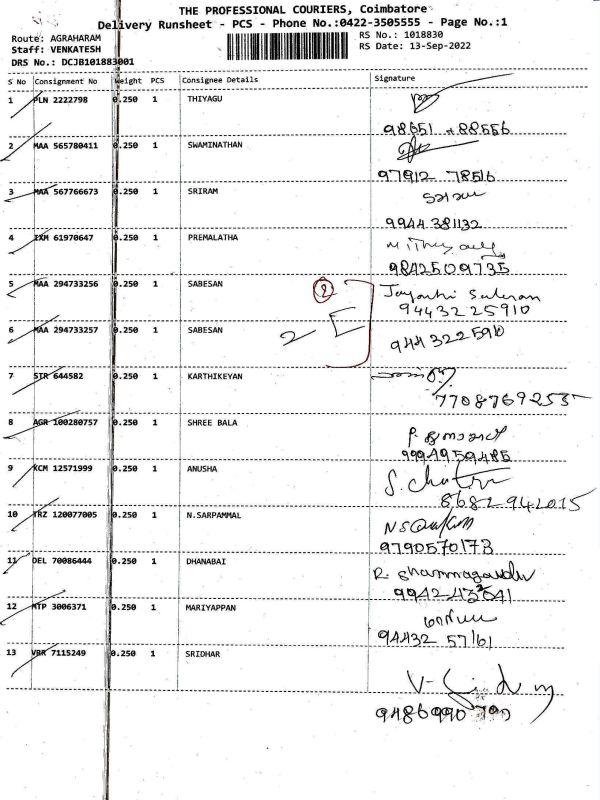 THE PROFESSIONAL COURIERS, Coimbatore
Delivery Runsheet - PCS - Phone No.:0422-3505555 - Page No.:1
Route: AGRAHARAM
Staff: VENKATESH
DRS No.: DCJB101883001
RS No.: 1018830
RS Date: 13-Sep-2022
S No Consignment No Weight PCS Consignee Details Signature
1 PLN 2222798 0.250 1 THIYAGU
98651 88556
2 MAA 565780411 0.250 1 SWAMINATHAN
97912 78516
3 MAA 567766673 0.250 1 SRIRAM
9944 381132
4 IXM 61970647 0.250 1 PREMALATHA
9842509735
5 MAA 294733256 0.250 1 SABESAN
2
Jayanthi Sabesan
9443225910
6 MAA 294733257 0.250 1 SABESAN
2
9443225910
7 STR 644582 0.250 1 KARTHIKEYAN
7708769255
8 AGR 100280757 0.250 1 SHREE BALA
9994959485
9 KCM 12571999 0.250 1 ANUSHA
8682942015
10 TRZ 120077005 0.250 1 N.SARPAMMAL
9790570173
11 DEL 70086444 0.250 1 DHANABAI
R.
12 MTP 3006371 0.250 1 MARIYAPPAN
94432 57161
13 VRR 7115249 0.250 1 SRIDHAR
9486990